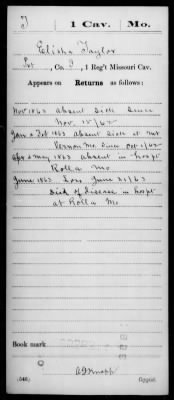 T | 1 Cav. | Mo.
Elisha Taylor
Pvt, Co. I, 1 Reg't Missouri Cav.
Appears on
Returns as follows:
Nov 1862 absent sick since
Nov. 15/62
Jan & Feb 1863 absent sick at Mt
Vernon Mo. since Oct 1/62
Apr & May 1863 absent in hospt
Rolla Mo
June 1863 Loss June 21/63
Died of disease in hospt
at Rolla Mo
Book mark:
(546)
Copyist.